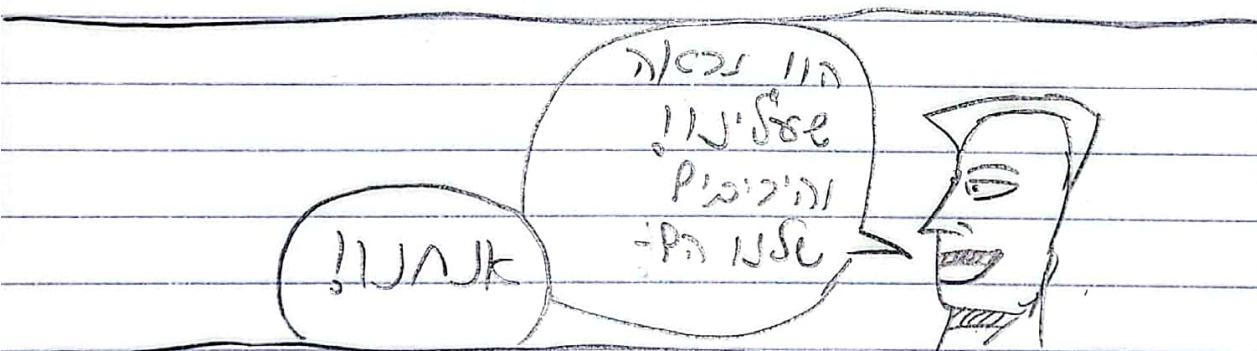 הוו נראה
שעלינו!
והיריבים
שלנו הם-
אנחנו!